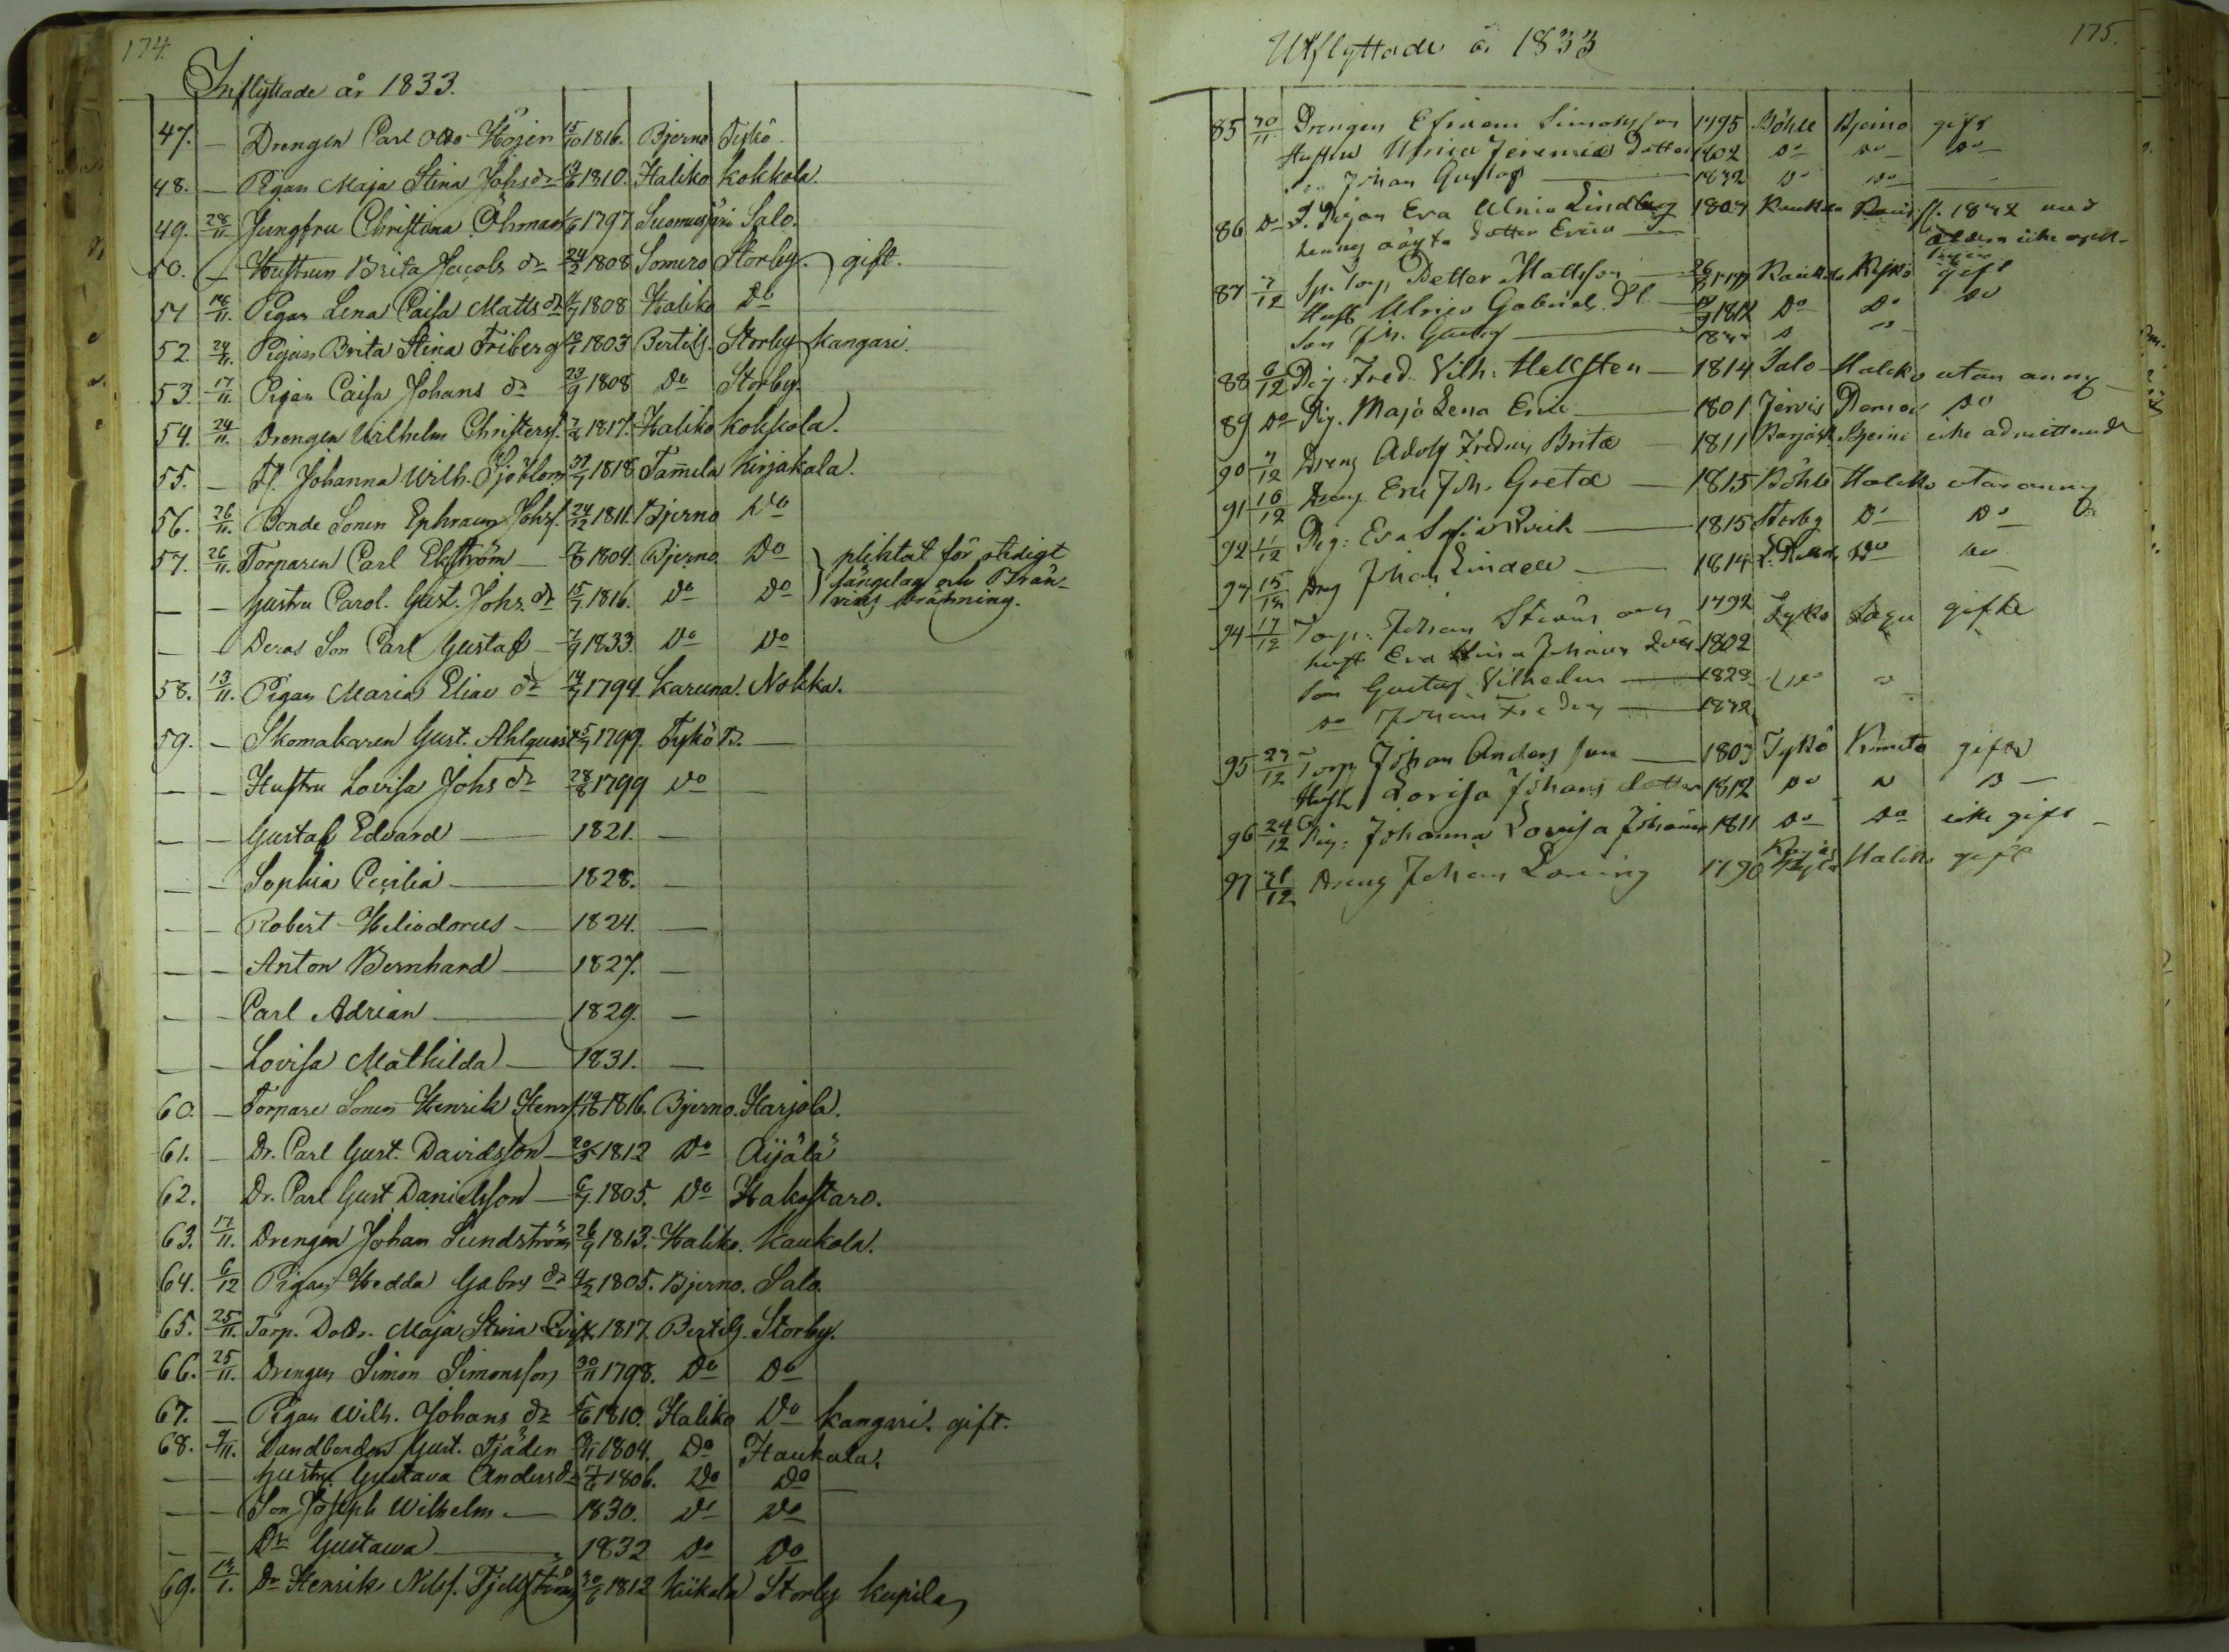 174.
Inflyttade år 1833.
47. — Drengen Carl Otto Höjer 15/10 1816. Bjerno Tykö
48. — Pigan Maja Stina Johs dr 1810. Haliko Kokkola.
49. 28/11. Jungfru Christina Öhman 1797 Suomusjärvi Salo.
50. — Hustrun Brita Jacobs dr 24/2 1808 Somero Storby. gift.
51 18/11. Pigan Lena Caisa Matts dr 1808 Haliko Do
52. 24/11. Pigan Brita Stina Friberg 1803 Bertils. Storby Kangari.
53. 17/11. Pigan Caisa Johans dr 23/9 1808 Do Storby
54. 24/11. Drengen Wilhelm Christerss. 1817. Haliko Kokkola.
55. — Johanna Wilh. Sjöblom 1818 Tamela Kirjakala.
56. 26/11. Bonde Sonen Ephraim Johss. 24/12 1811. Bjerno Do
57. 26/11. Torparen Carl Ekström — 1804. Bjerno Do plichtat för otidigt
— — Hustru Carol. Gust. Johs. dr 15/7 1816. Do Do sängelag och Brän-
vins bränning.
— — Deras Son Carl Gustaf — 7/9 1833. Do Do
58. 13/11. Pigan Maria Elias dr 14/7 1794. Karuna. Nokka.
59. — Skomakaren Gust. Ahlquist 1799. Tykö B. —
— — Hustru Lovisa Johs dr 28/8 1799 Do —
— — Gustaf Edvard — 1821. —
— — Sophia Cecilia — 1828. —
— — Robert Heliodorus — 1824. —
— — Anton Bernhard — 1827. —
— — Carl Adrian — 1829. —
— — Lovisa Mathilda — 1831. —
60. — Torpare Sonen Henrik Henrs. 1816. Bjerno. Harjola.
61. — Dr. Carl Gust. Davidsson — 20/5 1812 Do Äijälä
62. Dr. Carl Gust Danielsson — 6/7 1805. Do Hakostaro.
63. 17/11. Drengen Johan Sundström 26/9 1813. Haliko. Kaukola.
64. 6/12 Pigan Hedda Gabrs dr 4/2 1805. Bjerno. Salo.
65. 25/11. Torp. Dottr. Maja Stina 1817. Bertils. Storby.
66. 25/11. Drengen Simon Simonsson 30/11 1798. Do Do
67. — Pigan Wilh. Johans dr 1810. Haliko Do Kangari. gift.
68. 9/11. Landbonden Gust. Tjäder 1804. Do Haukala.
— — Hustru Gustava Anders dr 1806. Do Do —
— — Son Joseph Wilhelm — 1830. Do Do
— — Dr Gustawa — 1832 Do Do
69. Dr Henrik Nilss. Fjellström 30/6 1812 Kiikala Storby Kupila
175.
Utflyttade år 1833
85 30/11 Drengen Efraem Simonsson 1795 Böhle Bjerno gift
Hustru Ulrica Jeremiæ dotter 1802 Do Do Do
Johan Gustaf — 1832 Do Do —
86 Do Pigan Eva Ulrica Lindberg 1807
dotter Erica —
87 7/12 Sp. Torp. Petter Mattsson — Kaukola Kisko gift
Hust Ulrica Gabriels dr — 1812 Do Do Do
Son Joh. Gustaf —
88 6/12 Pig. Fred. Vilh. Hellsten — 1814 Salo Haliko utan anm
89 Do Pig. Maja Lena Eric — 1801 Do
90 7/12 Dreng Adolf Fredric Brita — 1811 icke admitterad
91 10/12 Dreng Eric Joh. Greta — 1815 Böhle Haliko utan anm
92 11/12 Pig: Eva Sofia — 1815 Storby Do Do
93 15/12 Dreng Johan Lindell — 1814 Do Do
94 17/12 Torp: Johan 1792 Tykö Sagu gifta
hust Eva Stina Johans dotter 1802
Son Gustaf Vilhelm — 1829 Do
Do Johan Fredric — 1832
95 23/12 Torp Johan Andersson — 1803 Tykö Kimito gifta
Hust Lovisa Johans dotter 1812 Do
96 24/12 Pig: Johanna Lovisa Johans 1811 Do Do icke gift —
97 31/12 Dreng Johan 1790 Haliko gift